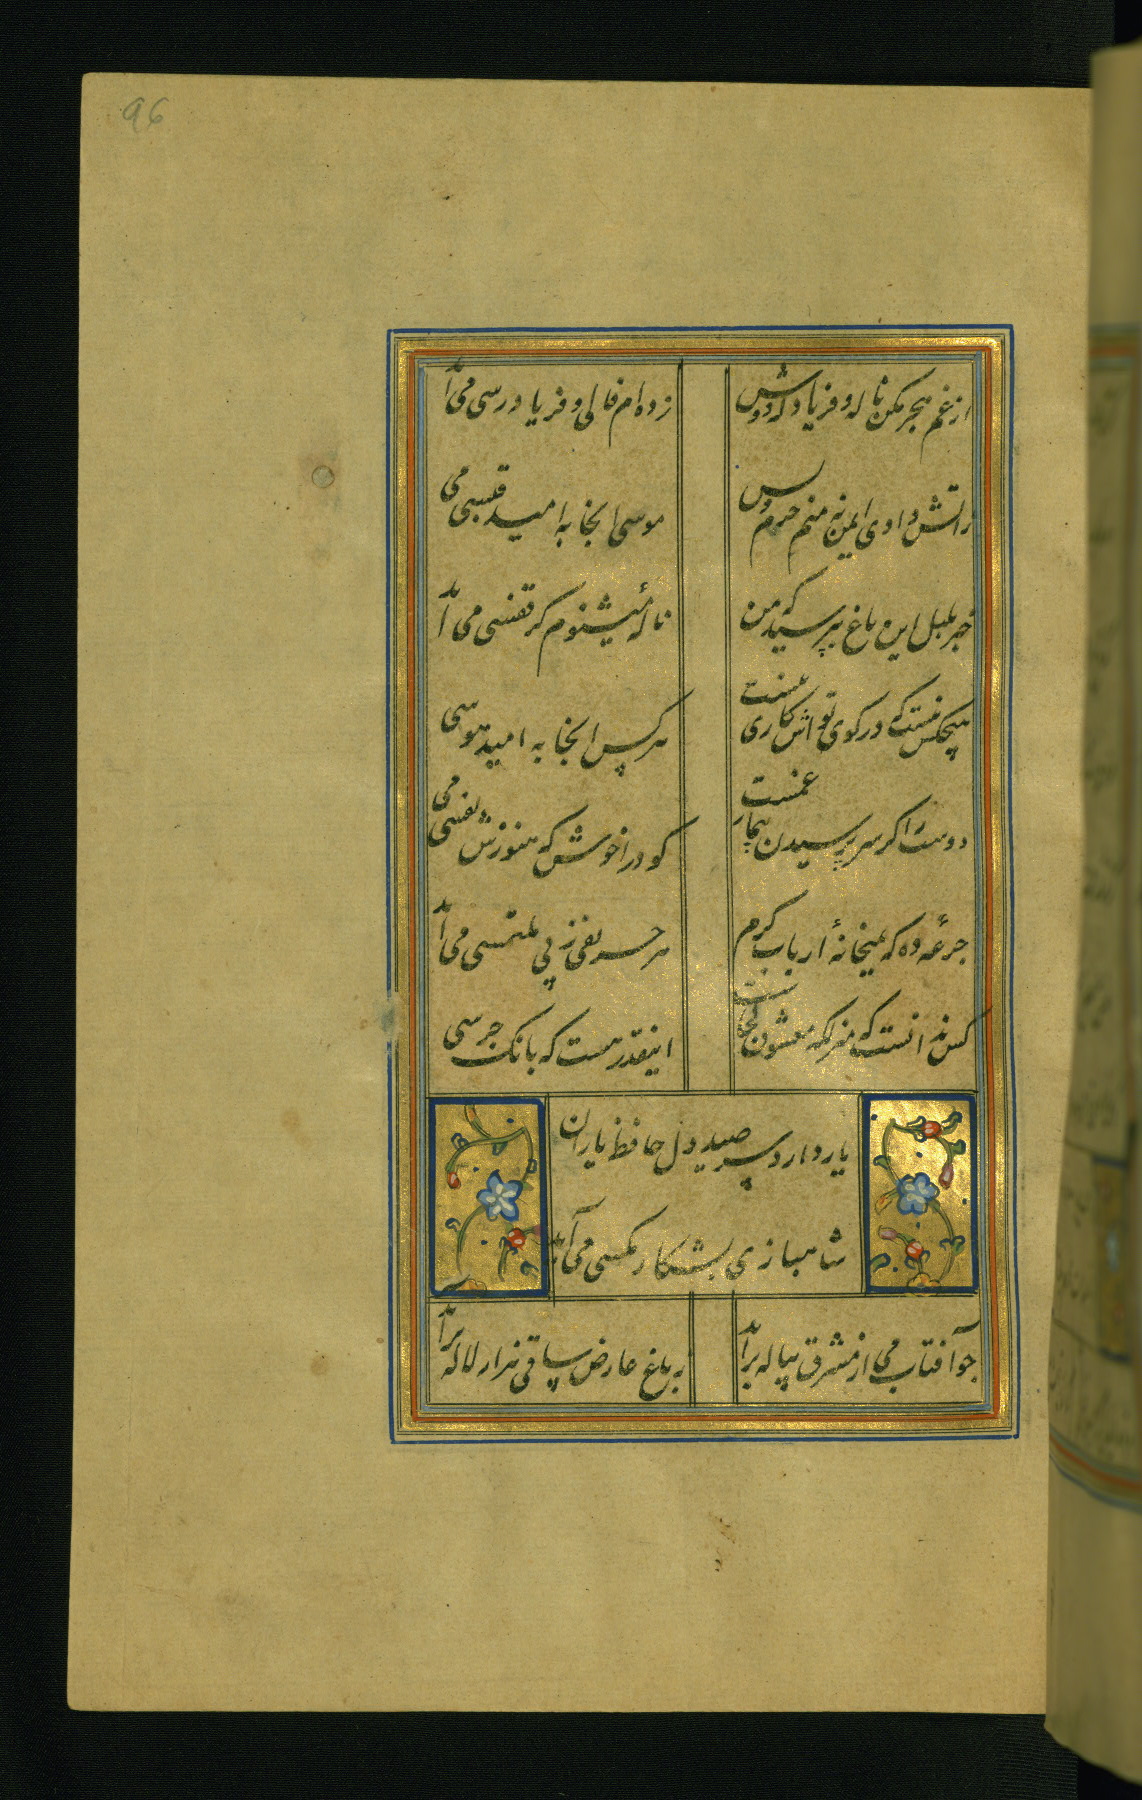 96
از غم هجر مکن ناله و فریاد که دوش
زده‌ام فالی و فریادرسی می‌آید
زاتش وادی ایمن نه منم خرم و بس
موسی اینجا به امید قبسی می
خبر بلبل این باغ بپرسید که من
ناله میشنوم کز قفسی می آید
هیچکس نیست که در کوی تو اش کاری نیست
هر کس اینجا به امید هوسی
دوست را گر سر پرسیدن بیمار غمست
گو درا خوش که هنوزش نفسی می
جرعه ده که بمیخانه ارباب کرم
هر حریفی ز پی ملتمسی می آید
کس ندانست که منزلگه معشوق کجاست
اینقدر هست که بانک جرسی
یار دارد سر صید دل حافظ یاران
شاهبازی بشکار مکسی می آید
چو آفتاب می از مشرق پیاله برآید
ز باغ عارض ساقی هزار لاله برآید